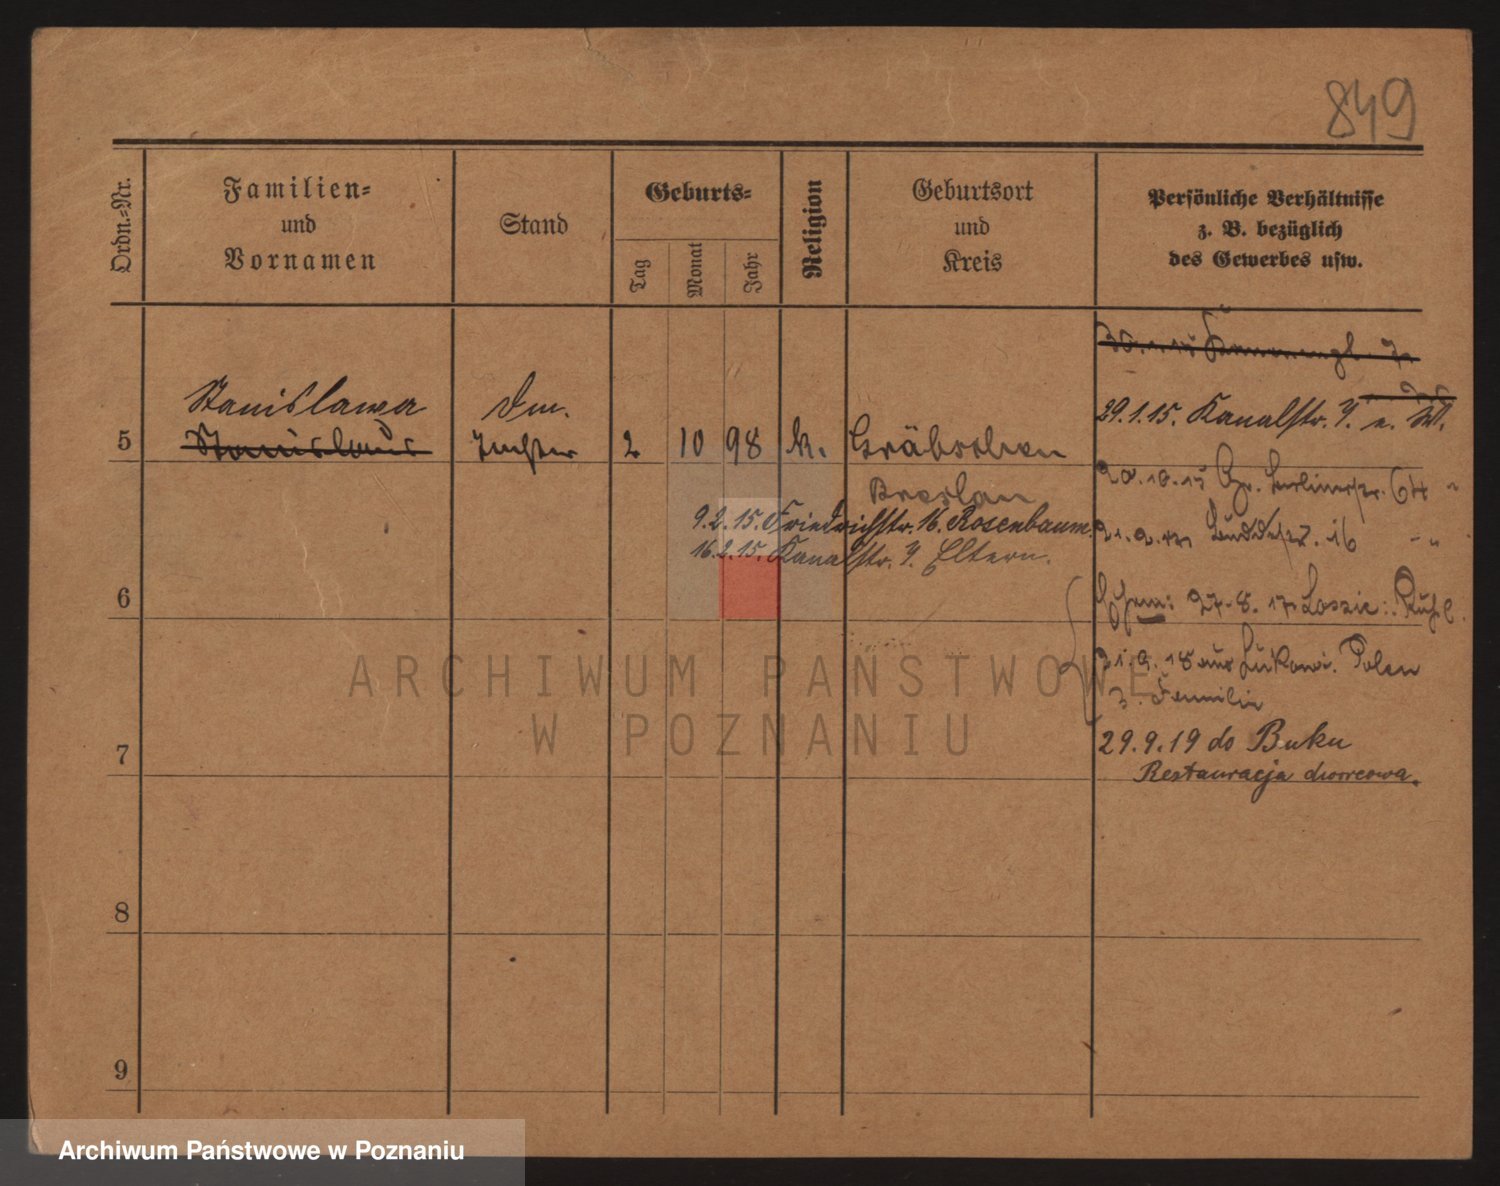 849
Ordn.=Nr.
Familien=
und
Vornamen
Stand
Geburts=
Tag
Monat
Jahr
Religion
Geburtsort
und
Kreis
Persönliche Verhältnisse
z. B. bezüglich
des Gewerbes usw.
29.1.15. Kanalstr. 7.
5
Stanislawa
Stanislaus
Tochter
2
10
98
k.
Gräbschen
Breslau
9.2.15. Friedrichstr. 16. Rosenbaum.
16.2.15. Kanalstr. 7. Eltern.
20.10.15
64
16
6
27.8.17
31.9.18 aus Polen
z. Familie
7
29.9.19 do Buku
Restauracja dworcowa.
8
9
ARCHIWUM PAŃSTWOWE
W POZNANIU
Archiwum Państwowe w Poznaniu